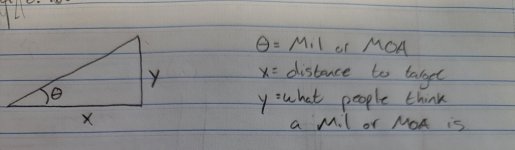 θ = Mil or MOA
x = distance to target
y = what people think
a Mil or MOA is
θ
y
x